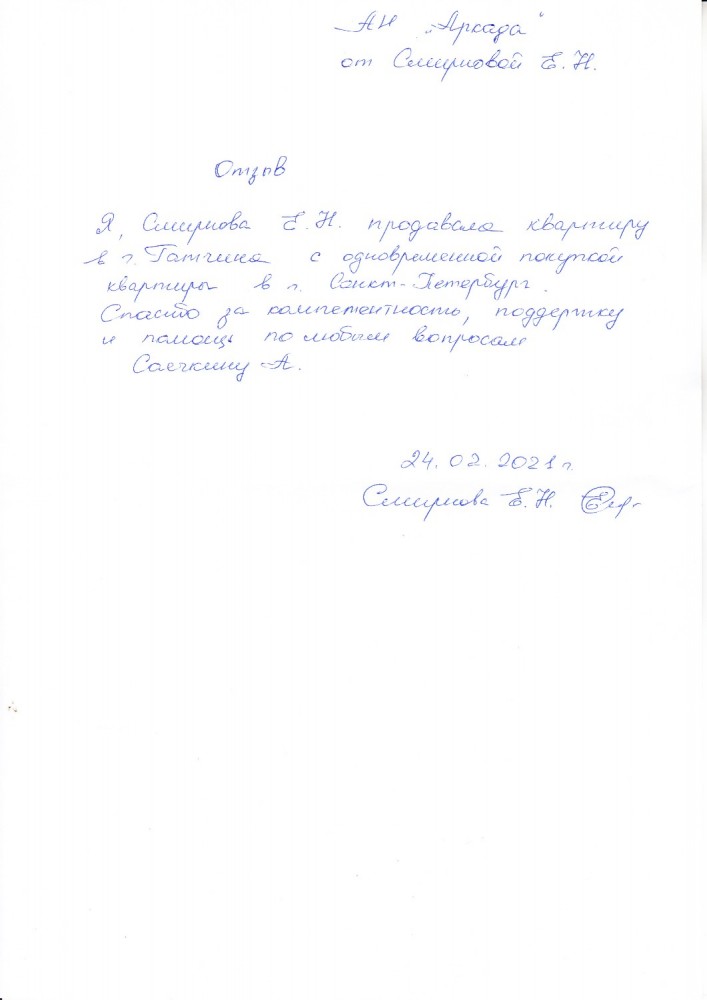 АН „Аркада“
от Смирновой Е.Н.
Отзыв
Я, Смирнова Е.Н. продавала квартиру
в г. Гатчина с одновременной покупкой
квартиры в г. Санкт-Петербург.
Спасибо за компетентность, поддержку
и помощь по любым вопросам
А.
24.02.2021 г.
Смирнова Е.Н.